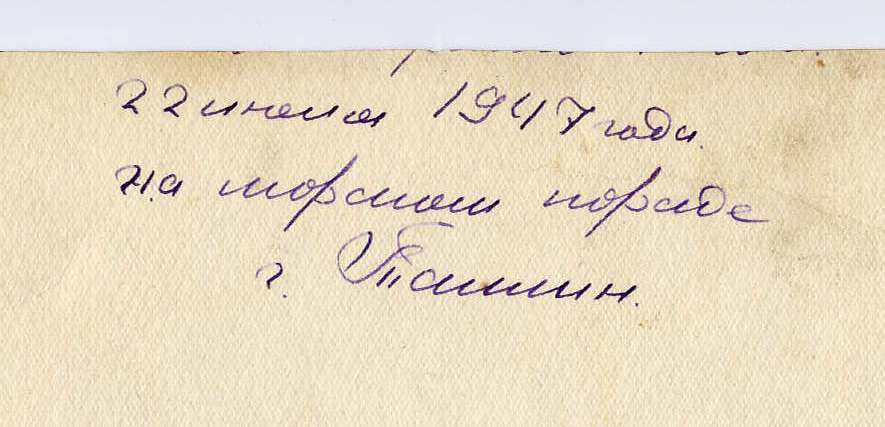 22 июля 1947 года.
на морском параде
г. Таллин.